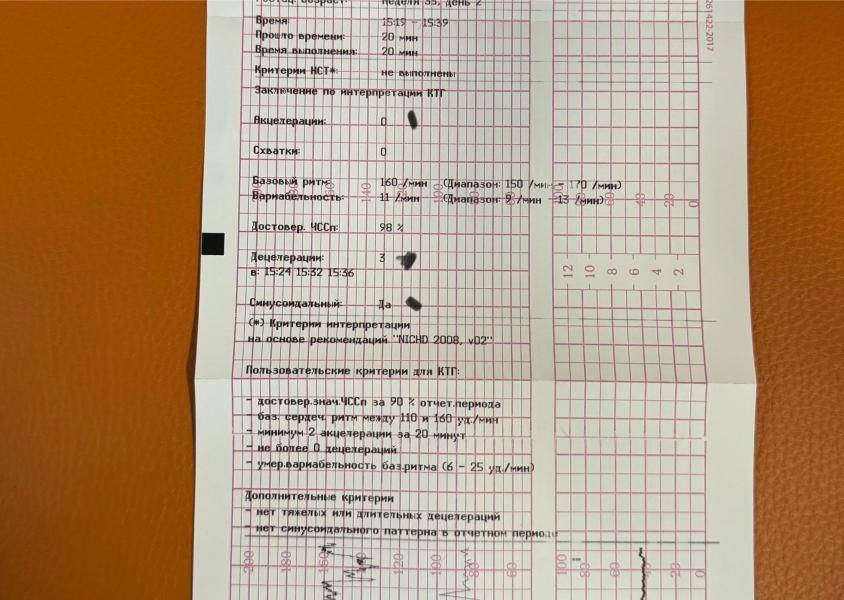 неделя 35, день 2
261422-2017
Время: 15:19 - 15:39
Прошло времени: 20 мин
Время выполнения: 20 мин
Критерии НСТ*: не выполнены
Заключение по интерпретации КТГ
Акцелерации: 0
Схватки: 0
Базовый ритм: 160 /мин (Диапазон: 150 /мин - 170 /мин)
Вариабельность: 11 /мин (Диапазон: 9 /мин - 13 /мин)
Достовер. ЧССп: 98 %
Децелерации: 3
в: 15:24 15:32 15:36
12 10 8 6 4 2
Синусоидальный: Да
(*) Критерии интерпретации
на основе рекомендаций "NICHD 2008, v02"
Пользовательские критерии для КТГ:
- достовер.знач.ЧССп за 90 % отчет.периода
- баз. сердеч. ритм между 110 и 160 уд./мин
- минимум 2 акцелерации за 20 минут
- не более 0 децелераций
- умер.вариабельность баз.ритма (6 - 25 уд./мин)
Дополнительные критерии
- нет тяжелых или длительных децелераций
- нет синусоидального паттерна в отчетном периоде
200 180 160 120 100 80 60 100 80 60 40 20 0